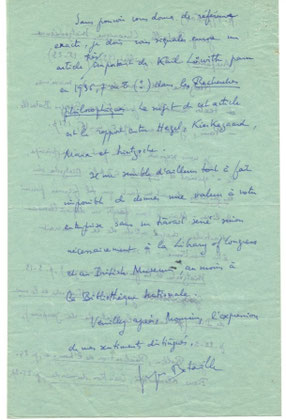 Sans pouvoir vous donner de référence
exacte, je dois vous signaler encore un
article très important de Karl Löwith, paru
en 1935, je crois (?) dans les Recherches
philosophiques. Le sujet de cet article
est le rapport entre Hegel, Kierkegaard,
Marx et Nietzsche.
Il me semble d'ailleurs tout à fait
impossible de donner une valeur à votre
entreprise sans un travail sérieux sinon
nécessairement à la Library of Congress
et au British Museum au moins à
la Bibliothèque Nationale.
Veuillez agréer Monsieur l'expression
de mes sentiments distingués.
Georges Bataille